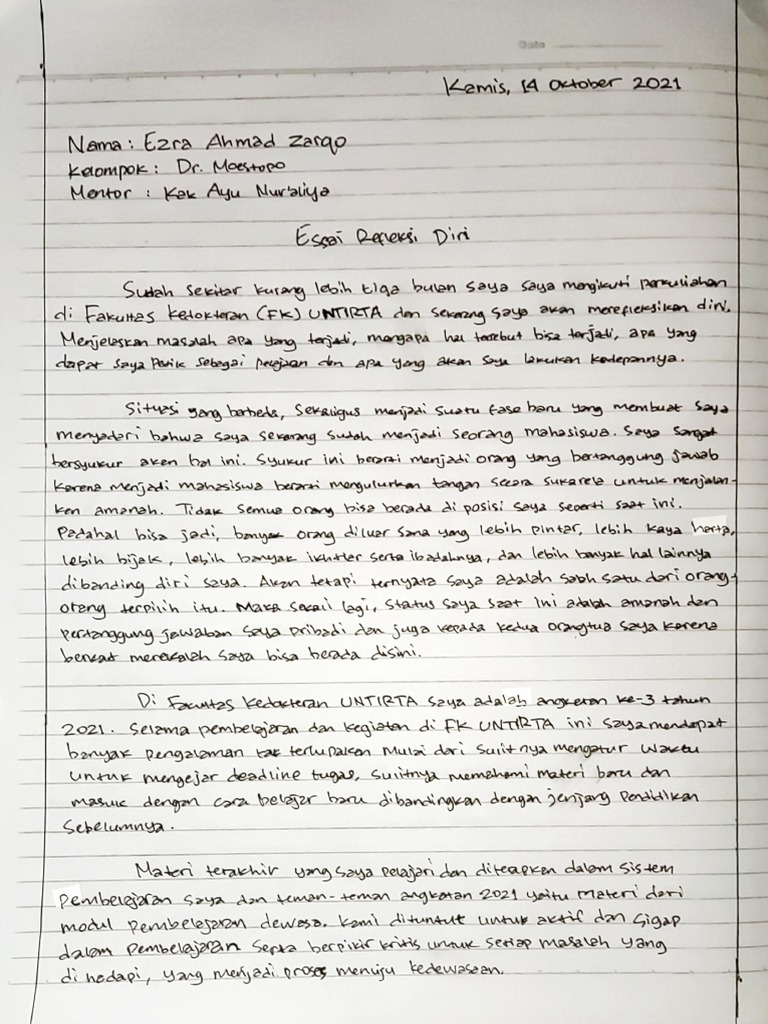 Date
Kamis, 14 Oktober 2021
Nama : Ezra Ahmad Zarqo
Kelompok : Dr. Moestopo
Mentor : Kak Ayu Nur'aliya
Essai Refleksi Diri
Sudah sekitar kurang lebih tiga bulan saya saya mengikuti perkuliahan
di Fakultas Kedokteran (FK) UNTIRTA dan sekarang saya akan merefleksikan diri.
Menjelaskan masalah apa yang terjadi, mengapa hal tersebut bisa terjadi, apa yang
dapat saya petik sebagai pelajaran dan apa yang akan saya lakukan kedepannya.
Situasi yang berbeda, sekaligus menjadi suatu fase baru yang membuat saya
menyadari bahwa saya sekarang sudah menjadi seorang mahasiswa. Saya sangat
bersyukur akan hal ini. Syukur ini berarti menjadi orang yang bertanggung jawab
karena menjadi mahasiswa berarti mengulurkan tangan secara sukarela untuk menjalan-
kan amanah. Tidak semua orang bisa berada di posisi saya seperti saat ini.
Padahal bisa jadi, banyak orang diluar sana yang lebih pintar, lebih kaya harta,
lebih bijak, lebih banyak ikhtiar serta ibadahnya, dan lebih banyak hal lainnya
dibanding diri saya. Akan tetapi ternyata saya adalah salah satu dari orang-
orang terpilih itu. Maka sekali lagi, status saya saat ini adalah amanah dan
pertanggung jawaban saya pribadi dan juga kepada kedua orangtua saya karena
berkat merekalah saya bisa berada disini.
Di Fakultas Kedokteran UNTIRTA saya adalah angkatan ke-3 tahun
2021. Selama pembelajaran dan kegiatan di FK UNTIRTA ini saya mendapat
banyak pengalaman tak terlupakan mulai dari sulitnya mengatur waktu
untuk mengejar deadline tugas, sulitnya memahami materi baru dan
masuk dengan cara belajar baru dibandingkan dengan jenjang pendidikan
sebelumnya.
Materi terakhir yang saya pelajari dan diterapkan dalam sistem
pembelajaran saya dan teman-teman angkatan 2021 yaitu materi dari
modul pembelajaran dewasa. Kami dituntut untuk aktif dan sigap
dalam pembelajaran serta berpikir kritis untuk setiap masalah yang
di hadapi, yang menjadi proses menuju kedewasaan.